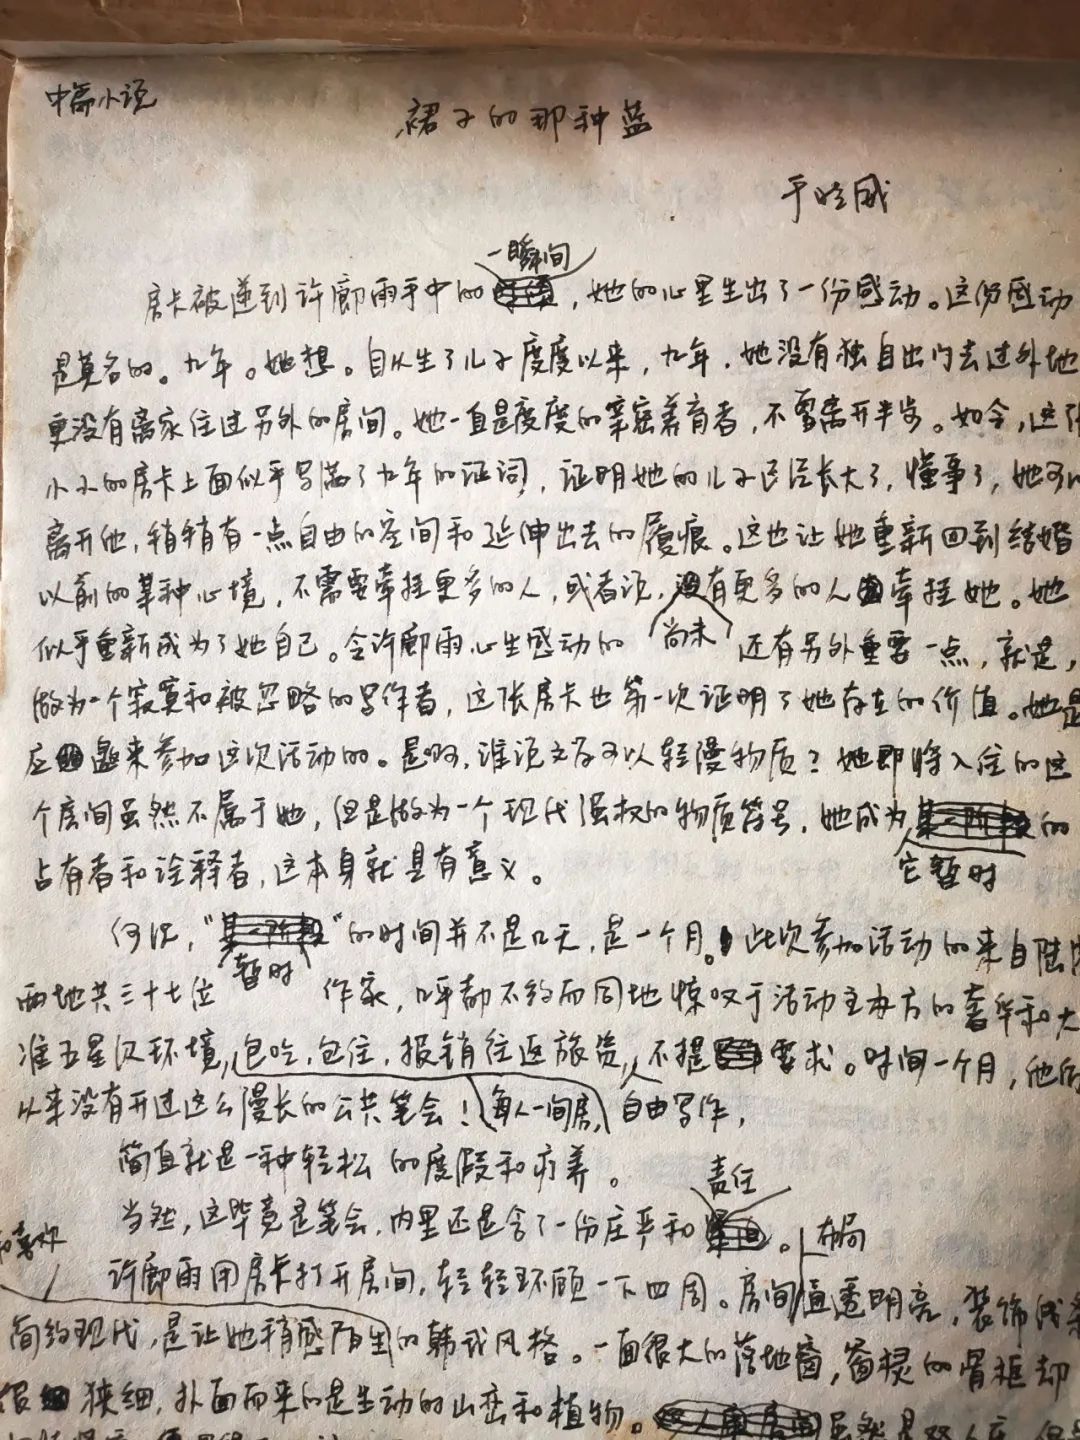 中篇小说
裙子的那种蓝
于晓威
一瞬间
房卡被递到许廊雨手中的，她的心里生出了一份感动。这份感动
是莫名的。九年。她想。自从生了儿子度度以来，九年，她没有独自出门去过外地
更没有离家住过另外的房间。她一直是度度的亲密养育者，不曾离开半步。如今，这
小小的房卡上面似乎写满了九年的证词，证明她的儿子已经长大了，懂事了，她可以
离开他，稍稍有一点自由的空间和延伸出去的履痕。这也让她重新回到结婚
以前的某种心境，不需要牵挂更多的人，或者说，没有更多的人牵挂她。她
似乎重新成为了她自己。令许廊雨心生感动的尚未还有另外重要一点，就是，
做为一个寂寞和被忽略的写作者，这张房卡也第一次证明了她存在的价值。她是
应邀来参加这次活动的。是啊，谁说文学可以轻慢物质？她即将入住的这
个房间虽然不属于她，但是做为一个现代强权的物质符号，她成为某一阶段的
它暂时
占有者和诠释者，这本身就具有意义。
何况，“某一阶段”的时间并不是几天，是一个月。此次参加活动的来自陆
暂时
两地共三十七位作家，呼都不约而同地惊叹于活动主办方的奢华和大
准五星级环境，包吃，包住，报销往返旅费，不提要求。时间一个月，他们
以来没有开过这么漫长的公共笔会！每人一间房，自由写作，
简直就是一种轻松的度假和疗养。
责任
当然，这毕竟是笔会，内里还是含了一份庄严和。
布局
许廊雨用房卡打开房间，轻轻环顾一下四周。房间通透明亮，装饰线条
简约现代，是让她稍感陌生的韩式风格。一面很大的落地窗，窗棂的骨框却
很狭细，扑面而来的是生动的山峦和植物。虽然是双人房